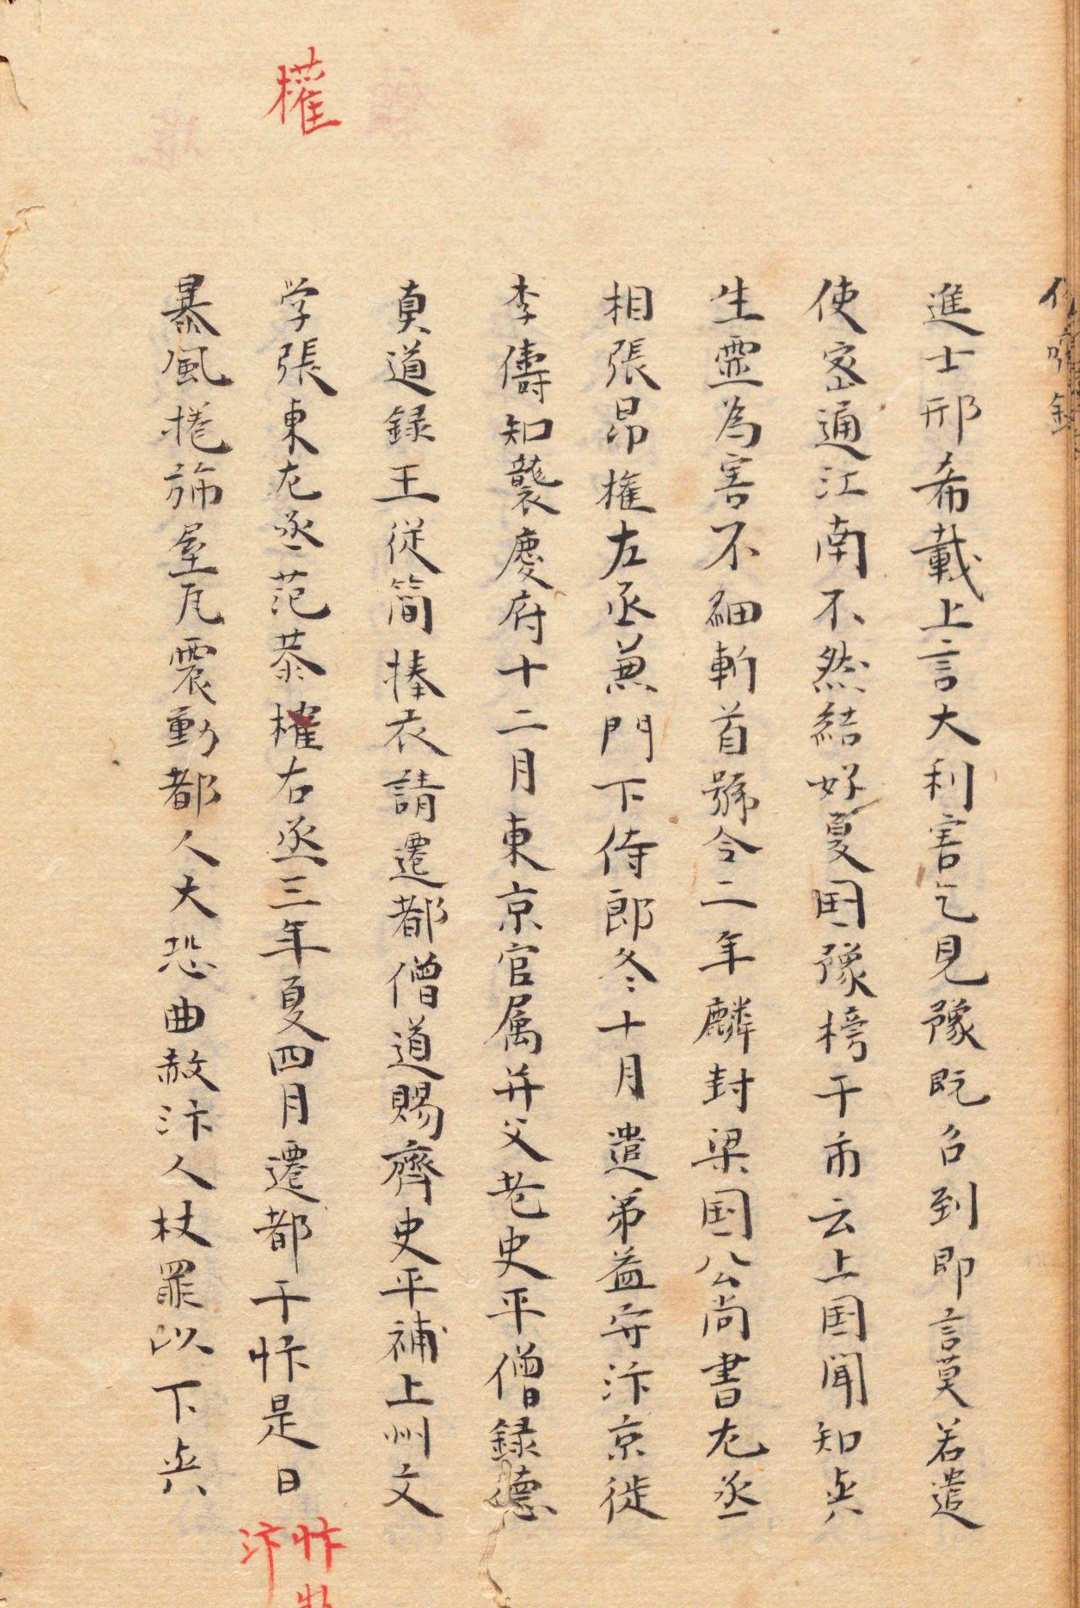 偽齊録
進士邢希載上言大利害乞見豫既召到即言莫若遣
使宻通江南不然結好夏国豫榜于市云上国聞知兵
生霊為害不細斬首號令二年麟封梁国公尚書左丞
相張昂権左丞兼門下侍郎冬十月遣弟益守汴京徙
李儔知襲慶府十二月東京官属并父老史平僧録德
真道録王従簡捧衣請遷都僧道賜齊史平補上州文
学張東左丞范恭權右丞三年夏四月遷都于忭是日
暴風捲斾屋瓦震動都人大恐曲赦汴人杖罪以下兵
權
忭
汴